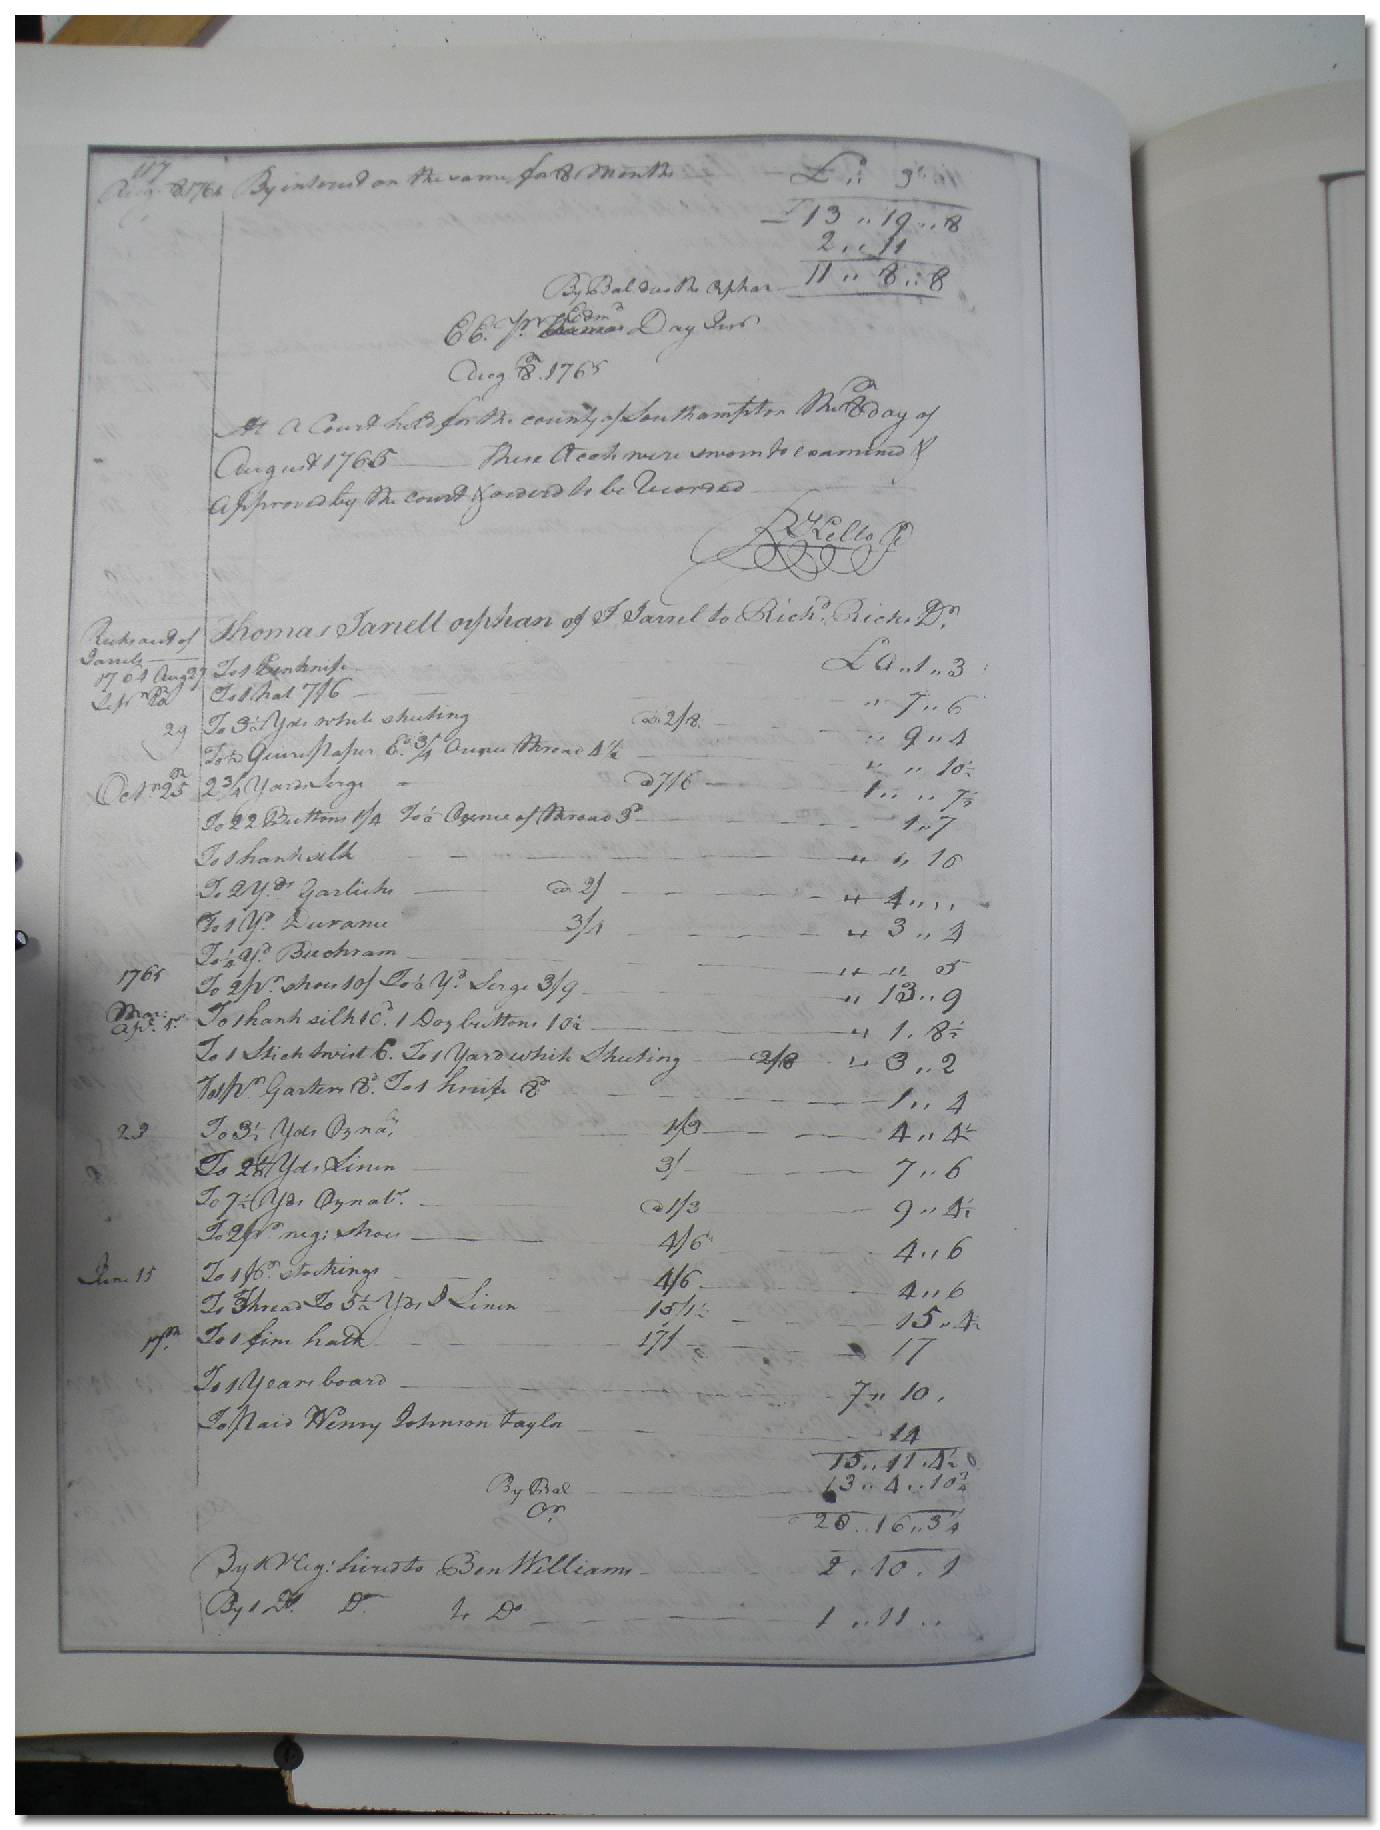 117
Aug 8 1764 By interest on the same for 8 Month £ ,, 9
£13 ,, 19 ,, 8
2 ,, 11
By Bal due the Orphan 11 ,, 8 ,, 8
Edmd
EE. Pr Day Junr
Augt 8th 1765
At a Court held for the county of Southampton the 8th day of
August 1765 These Accots were sworn to examined &
Approved by the court & ordered to be Recorded
R Kello
Ricks acct of Thomas Jarrell orphan of T Jarrel to Richd Ricks Dr
Jarrels
1764 Aug 27 To 1 Penknife £ 0 ,, 1 ,, 3
Sepr To 1 hat 7/6 ,, 7 ,, 6
29 To 3½ Yds white sheeting @ 2/8 ,, 9 ,, 4
To Quire paper 6d Ounce thread 4½ ,, ,, 10½
Octr 25 2¾ Yards Serge @ 7/6 1 ,, ,, 7½
To 22 Buttons 1/4 To Ounce of thread 3d 1 ,, 7
To 1 hank silk ,, ,, 10
To 2 Yds Garlicks @ 2/ ,, 4 ,, ,,
To 1 Yd Durance 3/4 ,, 3 ,, 4
To ½ Yd Buckram ,, ,, 5
1765 To 2 pr shoes 10/ To ½ Yd Serge 3/9 ,, 13 ,, 9
Mar:
Apr. 5 To 1 hank silk 10d. 1 Doz buttons 10½ ,, 1 ,, 8½
To 1 Stick twist 6. To 1 Yard white Sheeting 2/8 ,, 3 ,, 2
To 1 pr Garters 8d. To 1 knife 8d 1 ,, 4
23 To 3½ Yds Ozna. 1/3 4 ,, 4½
To 2½ Yds Linen 3/ 7 ,, 6
To 7½ Yds Oznabr. @ 1/3 9 ,, 4½
To 2 pr neg: shoes 4/6 4 ,, 6
June 15 To 1 pr stockings 4/6 4 ,, 6
To Thread To 5½ Yds I Linen 15/1½ 15 ,, 4½
17th To 1 fine hatt 17/ 17
To 1 Years board 7 ,, 10 ,
To Paid Henry Johnson taylor 14
15 ,, 11 ,, 4½
By Bal 13 ,, 4 ,, 10¾
Cr. 28 ,, 16 ,, 3¼
By 1 Neg: hired to Ben Williams 2 ,, 10 ,, 1
By 1 Do. Do. to Do 1 ,, 11 ,,